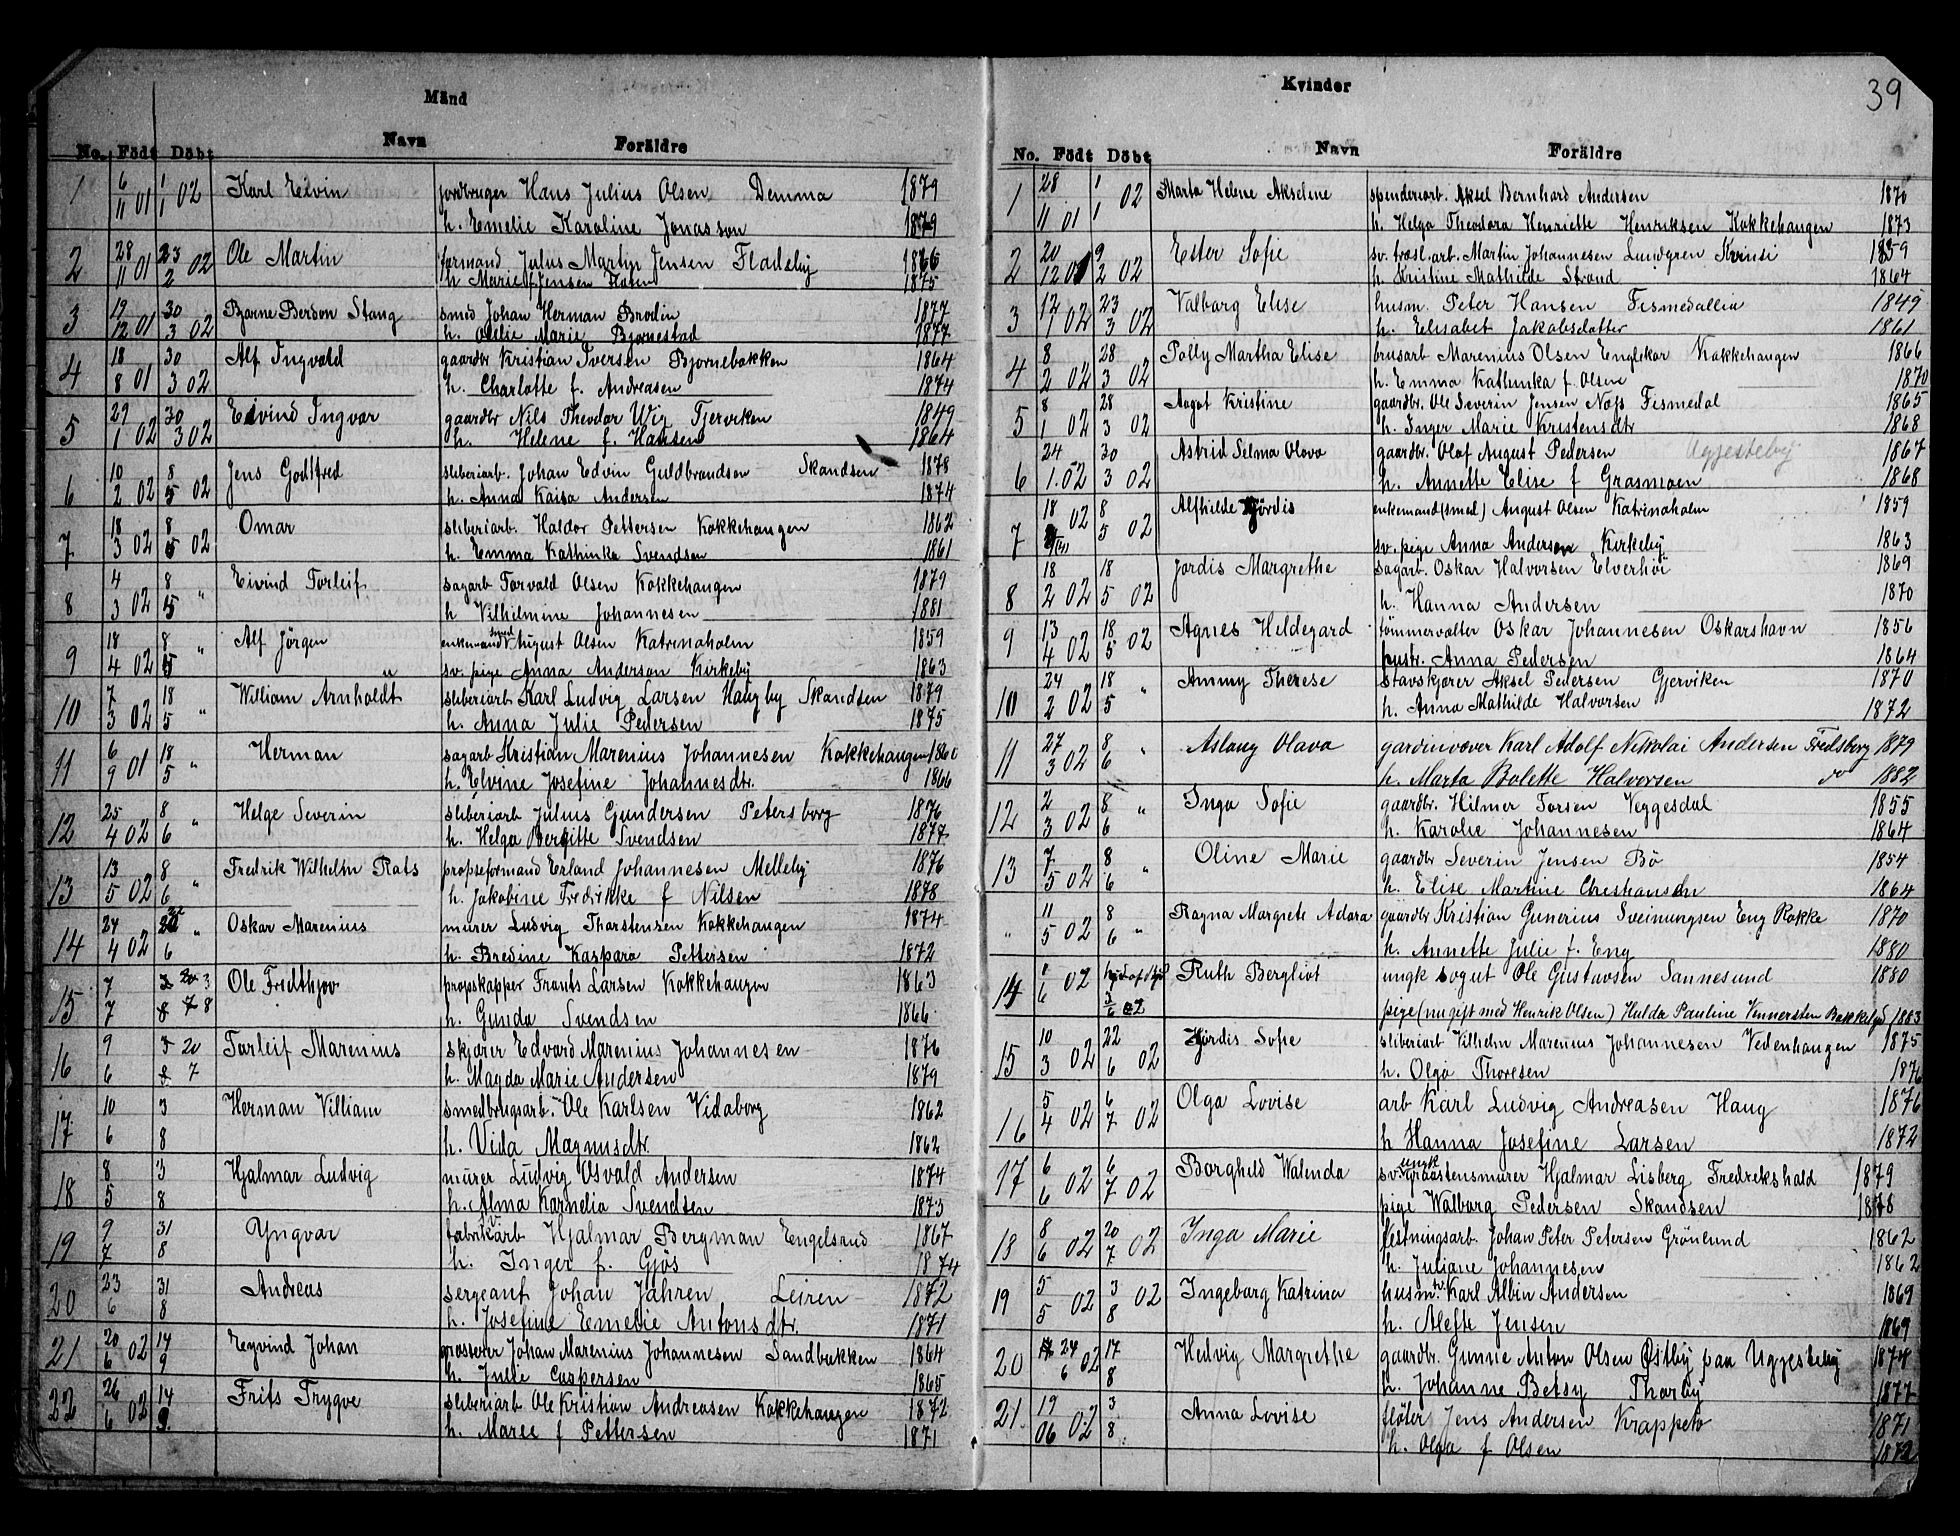 39
Mänd
Navn Foräldre
No. Födt Döbt
1 6/11 01 1/1 02 Karl Eivin jordbruger Hans Julius Olsen Demma 1879
h. Emelie Karoline Jonasson 1879
2 28/11 01 23/2 02 Ole Martin formand Julus Martin Jensen Fladeby
h Marie f. Jensen 1875
3 19/12 01 30/3 02 Bjarne Berdon Stang smed Johan Herman Brodin 1877
h. Marie Bjornestad 1877
4 18/8 01 30/3 02 Alf Ingvald gaardbr Kristian Iversen Bjornebakken 1864
h. Charlotte f. Andreasen 1874
5 29/1 02 30/3 02 Eivind Ingvar gaardbr Nils Theodor Wig Tjerviken 1849
h. Helene f. Hansen 1864
6 10/2 02 8/5 02 Jens Godtfred sliberiarb. Johan Edvin Guldbrandsen Skandsen 1878
h. Anna Kaisa Andersen 1874
7 18/3 02 8/5 02 Omar sliberiarb. Haldor Pettersen Kokkehaugen 1862
h. Emma Kathinka Svendsen 1861
8 4/3 02 8/5 " Eivind Torleif sagarb Torvald Olsen Kokkehaugen 1879
h Vilhilmine Johannesen 1881
9 18/4 02 8/5 " Alf Jörgen enkemand smed August Olsen Katrinaholm 1859
" sv. pige Anna Anderson Kirkeby 1863
10 7/3 02 18/5 " William Arnholdt sliberiarb Karl Ludvig Larsen Haugby Skandsen 1879
h. Anna Julie Pedersen 1875
11 6/9 01 18/5 " Herman sagarb Kristian Marenius Johannesen Kokkehaugen 1860
h. Elvine Josefine Johannesdtr. 1866
12 25/4 02 8/6 " Helge Severin sliberiarb Julius Gundersen Petersborg 1876
h. Helga Bergitte Svendsen 1877
13 13/5 02 8/6 " Fredrik Wilhelm Rats propseformand Erland Johannesen Melleby 1876
h. Jakobine Fredrikke f Nilsen 1878
14 24/4 02 22/6 " Oskar Marenius murer Ludvig Thorstensen Kokkehaugen 1874
h. Bredine Kaspara Pettersen 1872
15 7/7 3/8 Ole Fridthjov propskapper Frants Larsen Kokkehaugen 1863
h. Gunda Svendsen 1866
16 9/6 20/7 Torleif Marenius skjærer Edvard Marenius Johannesen 1876
h. Magda Marie Andersen 1879
17 10/6 3/8 Herman Villiam smedbrugsarb. Ole Karlsen Vidaborg 1862
h. Vida Magnusdtr. 1862
18 8/5 3/8 Hjalmar Ludvig murer Ludvig Osvald Andersen 1874
h. Alma Kornelia Svendsen 1873
19 9/7 31/8 Yngvar fabrikarb Hjalmar Bergman Engelsrud 1867
h. Inger f. Gjös 1874
20 23/6 31/8 Andreas sergeant Johan Jahren Leiren 1872
h. Josefine Emelie Antonsdtr. 1871
21 20/6 02 14/9 Eyvind Johan grosserer Johan Marenius Johannesen Sandbakken 1864
h. Julie Caspersen 1865
22 26/6 02 14/9 Frits Trygve sliberiarb Ole Kristian Andreasen Kokkehaugen 1872
h. Marie f Pettersen 1871
Kvinder
Navn Foräldre
No. Födt Döbt
1 28/11 01 1/1 02 Marta Helene Akseline spenderiarb. Aksel Bernhard Andersen 1870
h. Helga Theodora Henriette Henriksen Kokkehaugen 1873
2 20/12 01 9/2 02 Ester Sofie sv. træsl.arb. Martin Johannesen Lundgren Kvinsi 1859
h. Kristine Mathilde Strand 1864
3 12/1 02 23/3 02 Valborg Elise husm. Peter Hansen Fismedallia 1849
h. Elisabet Jakobsdatter 1861
4 8/2 02 28/3 02 Polly Martha Elise brusarb Marenius Olsen Englekor Kokkehaugen 1866
h. Emma Kathinka f. Olsen 1870
5 8/1 02 28/3 02 Aagot Kristine gaardbr. Ole Severin Jensen Næs Fismedal 1865
h. Inger Marie Kristensdtr 1868
6 24/1. 02 30/3 02 Astrid Selma Olava gaardbr. Olaf August Pedersen Uggesteby 1867
h. Annette Elise f Grasmoen 1868
7 18 02 8/5 02 Alfhilde Hjördis enkemand (smed) August Olsen Katrinaholm 1859
sv. pige Anna Andersen Kirkeby 1863
8 18/2 02 18/5 02 Jordis Margrethe sagarb. Oskar Halvorsen Elverhöi 1869
h. Hanna Andersen 1870
9 13/4 02 18/5 02 Agnes Hildegard tömmervælter Oskar Johannesen Oskarshavn 1856
hustr. Anna Pedersen 1864
10 24/2 02 18/5 " Ammy Therese stavskjærer Aksel Pedersen Gjerviken 1870
h. Anna Mathilde Halvorsen 1872
11 27/3 02 8/6 " Aslaug Olava gardinvæver Karl Adolf Nikolai Andersen Fredsborg 1879
h. Marta Bolette Halvorsen do 1882
12 2/3 02 8/6 " Inga Sofie gaardbr. Hilmer Torsen Veggesdal 1855
h. Karolie Johannesen 1864
13 7/5 02 8/6 " Oline Marie gaardbr Severin Jensen Bö 1854
h. Elise Martine Christiansen 1864
" 11/5 02 8/6 " Ragna Margrete Adora gaardbr Kristian Gunerius Sveinungsen Eng Rokke 1870
h. Annette Julie f. Eng 1880
14 1/6 02 3/6 02 Ruth Bergliot ungk sogut Ole Gustavsen Sannesund 1880
pige (nu gift med Henrik Olsen) Hulda Pauline Vennersten 1883
15 10/3 02 22/6 02 Hjordis Sofie sliberiarb Vilhelm Marenius Johannesen Vedenhaugen 1875
h. Olga Thoresen 1876
16 5/4 02 6/7 02 Olga Lovise arb Karl Ludvig Andreasen Haug 1876
h Hanna Josefine Larsen 1872
17 6/6 02 6/7 02 Borghild Walinda sv. ungk graastensmurer Hjalmar Lisberg Fredrikshald 1879
pige Walborg Pedersen Skandsen 1878
18 8/6 02 20/7 02 Inga Marie festningsarb. Johan Peter Petersen Grönlund 1862
h. Juliane Johannesen 1862
19 5/5 02 3/8 02 Ingeborg Katrina husm. Karl Albin Andersen 1869
h. Alefte Jensen 1869
20 24/6 02 17/8 Hedvig Margrethe gaardbr. Gunne Anton Olsen Østby paa Uggesteby 1874
h. Johanne Betsy Thorby 1877
21. 19/06 02 3/8 Anna Lovise fløter Jens Andersen Krappeto 1871
h. Olga f Olsen 1872